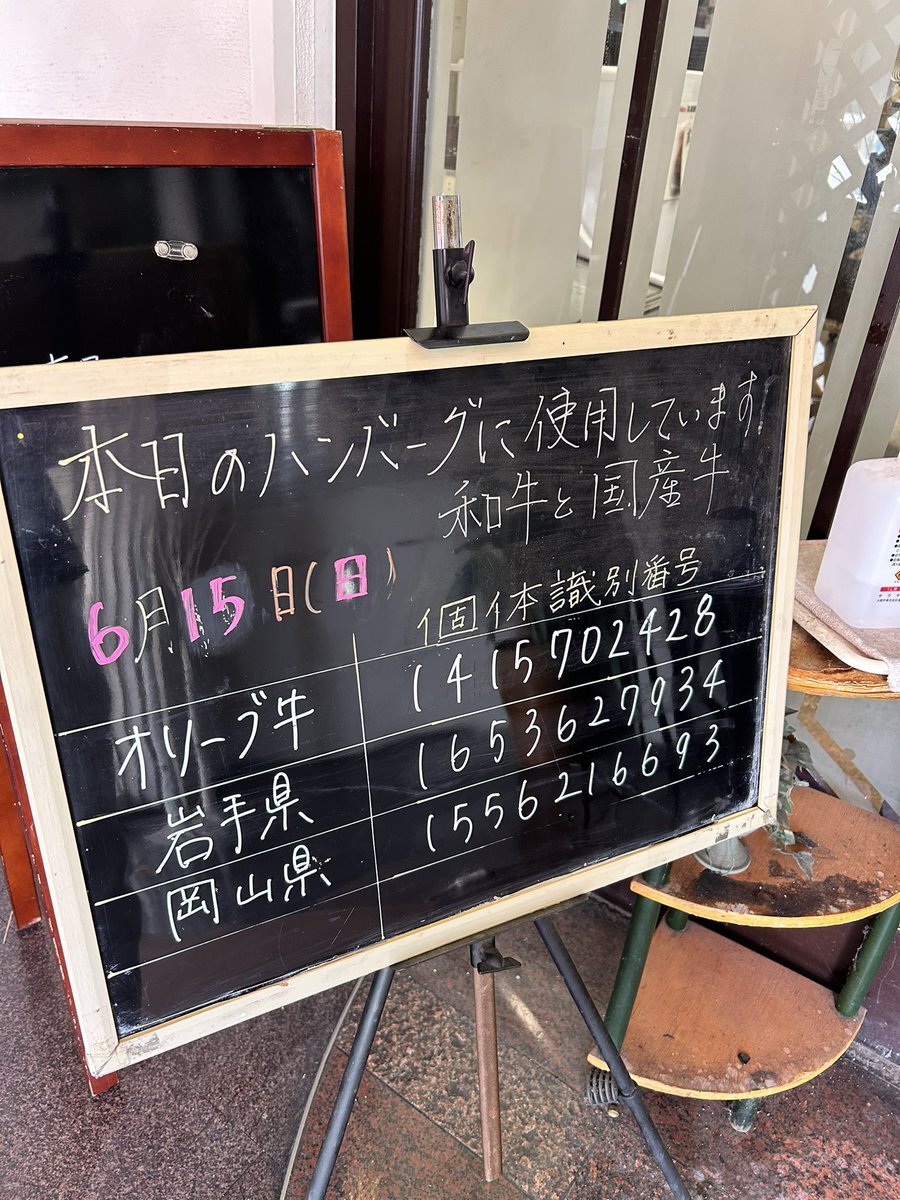 本日のハンバーグに使用しています
和牛と国産牛
6月15日(日) 個体識別番号
オリーブ牛 1415702428
岩手県 1653627934
岡山県 1556216693